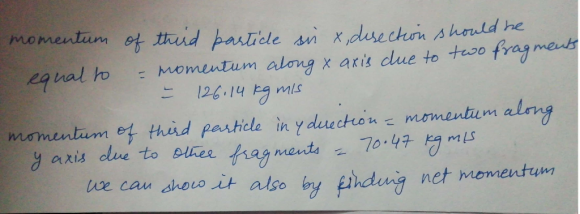 momentum of third particle in x, direction should be
equal to = momentum along x axis due to two fragments
= 126.14 kg m/s
momentum of third particle in y direction = momentum along
y axis due to other fragments = 70.47 kg m/s
we can show it also by finding net momentum